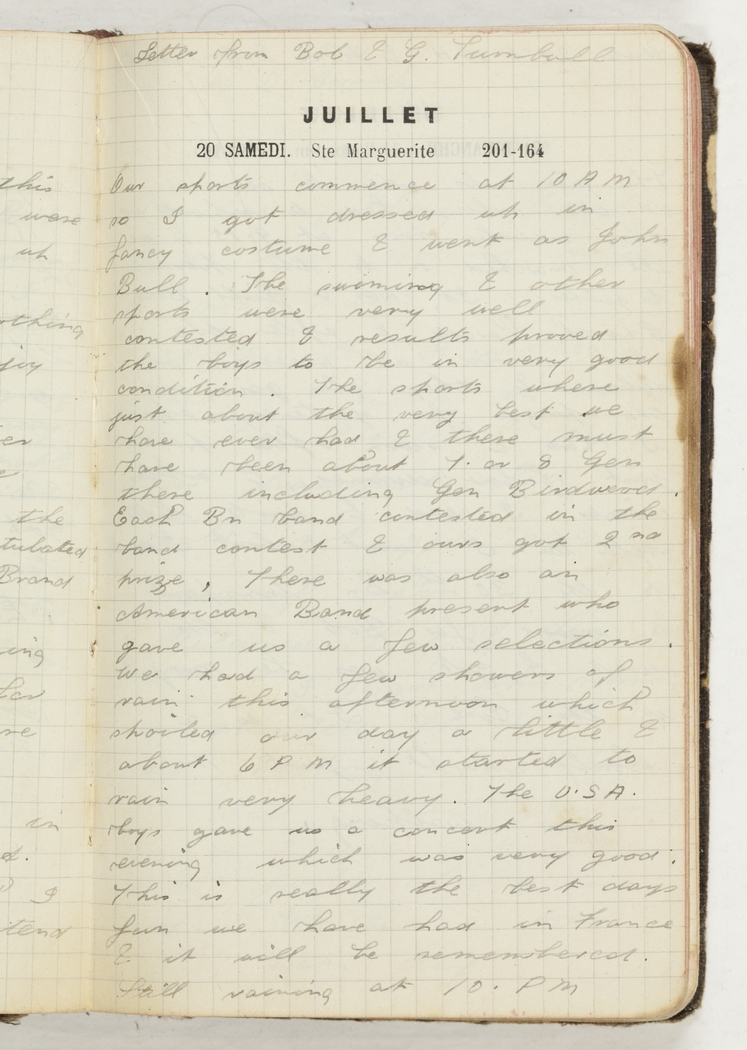 Letter from Bob & G. Turnbull
JUILLET
20 SAMEDI. Ste Marguerite 201-164
this
Our sports commence at 10 A M
were
so I got dressed up in
up
fancy costume & went as John
Bull. The swiming & other
sports were very well
contested & results proved
the boys to be in very good
joy
condition. The sports where
just about the very best we
have ever had & there must
have been about 7. or 8 Gen
there including Gen Birdwood.
Each Bn band contested in the
the
band contest & ours got 2nd
prize, There was also an
Brand
American Band present who
gave us a few selections.
We had a few showers of
rain this afternoon which
spoiled our day a little &
about 6 P M it started to
rain very heavy. The U.S.A.
boys gave us a concert this
in
evening which was very good.
This is really the best days
I
fun we have had in France
& it will be remembered.
Still raining at 10. P M